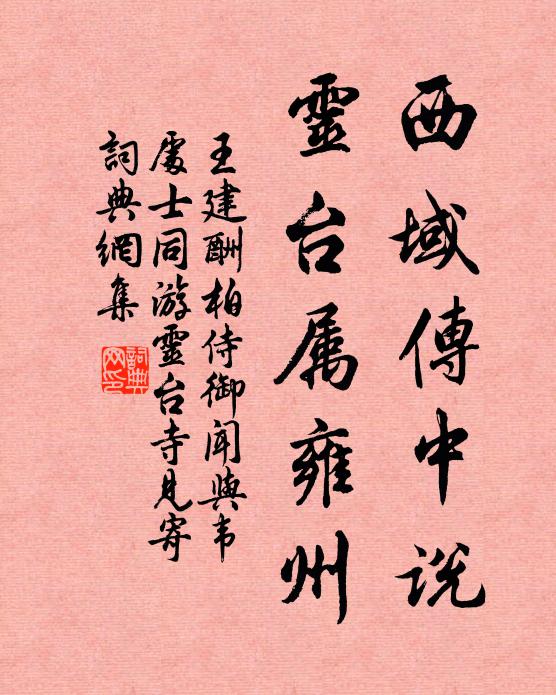 西域傳中说
靈台属雍州
王建酬柏侍御闻與韦
處士同游靈台寺見寄
詞典網集
詞典
网印